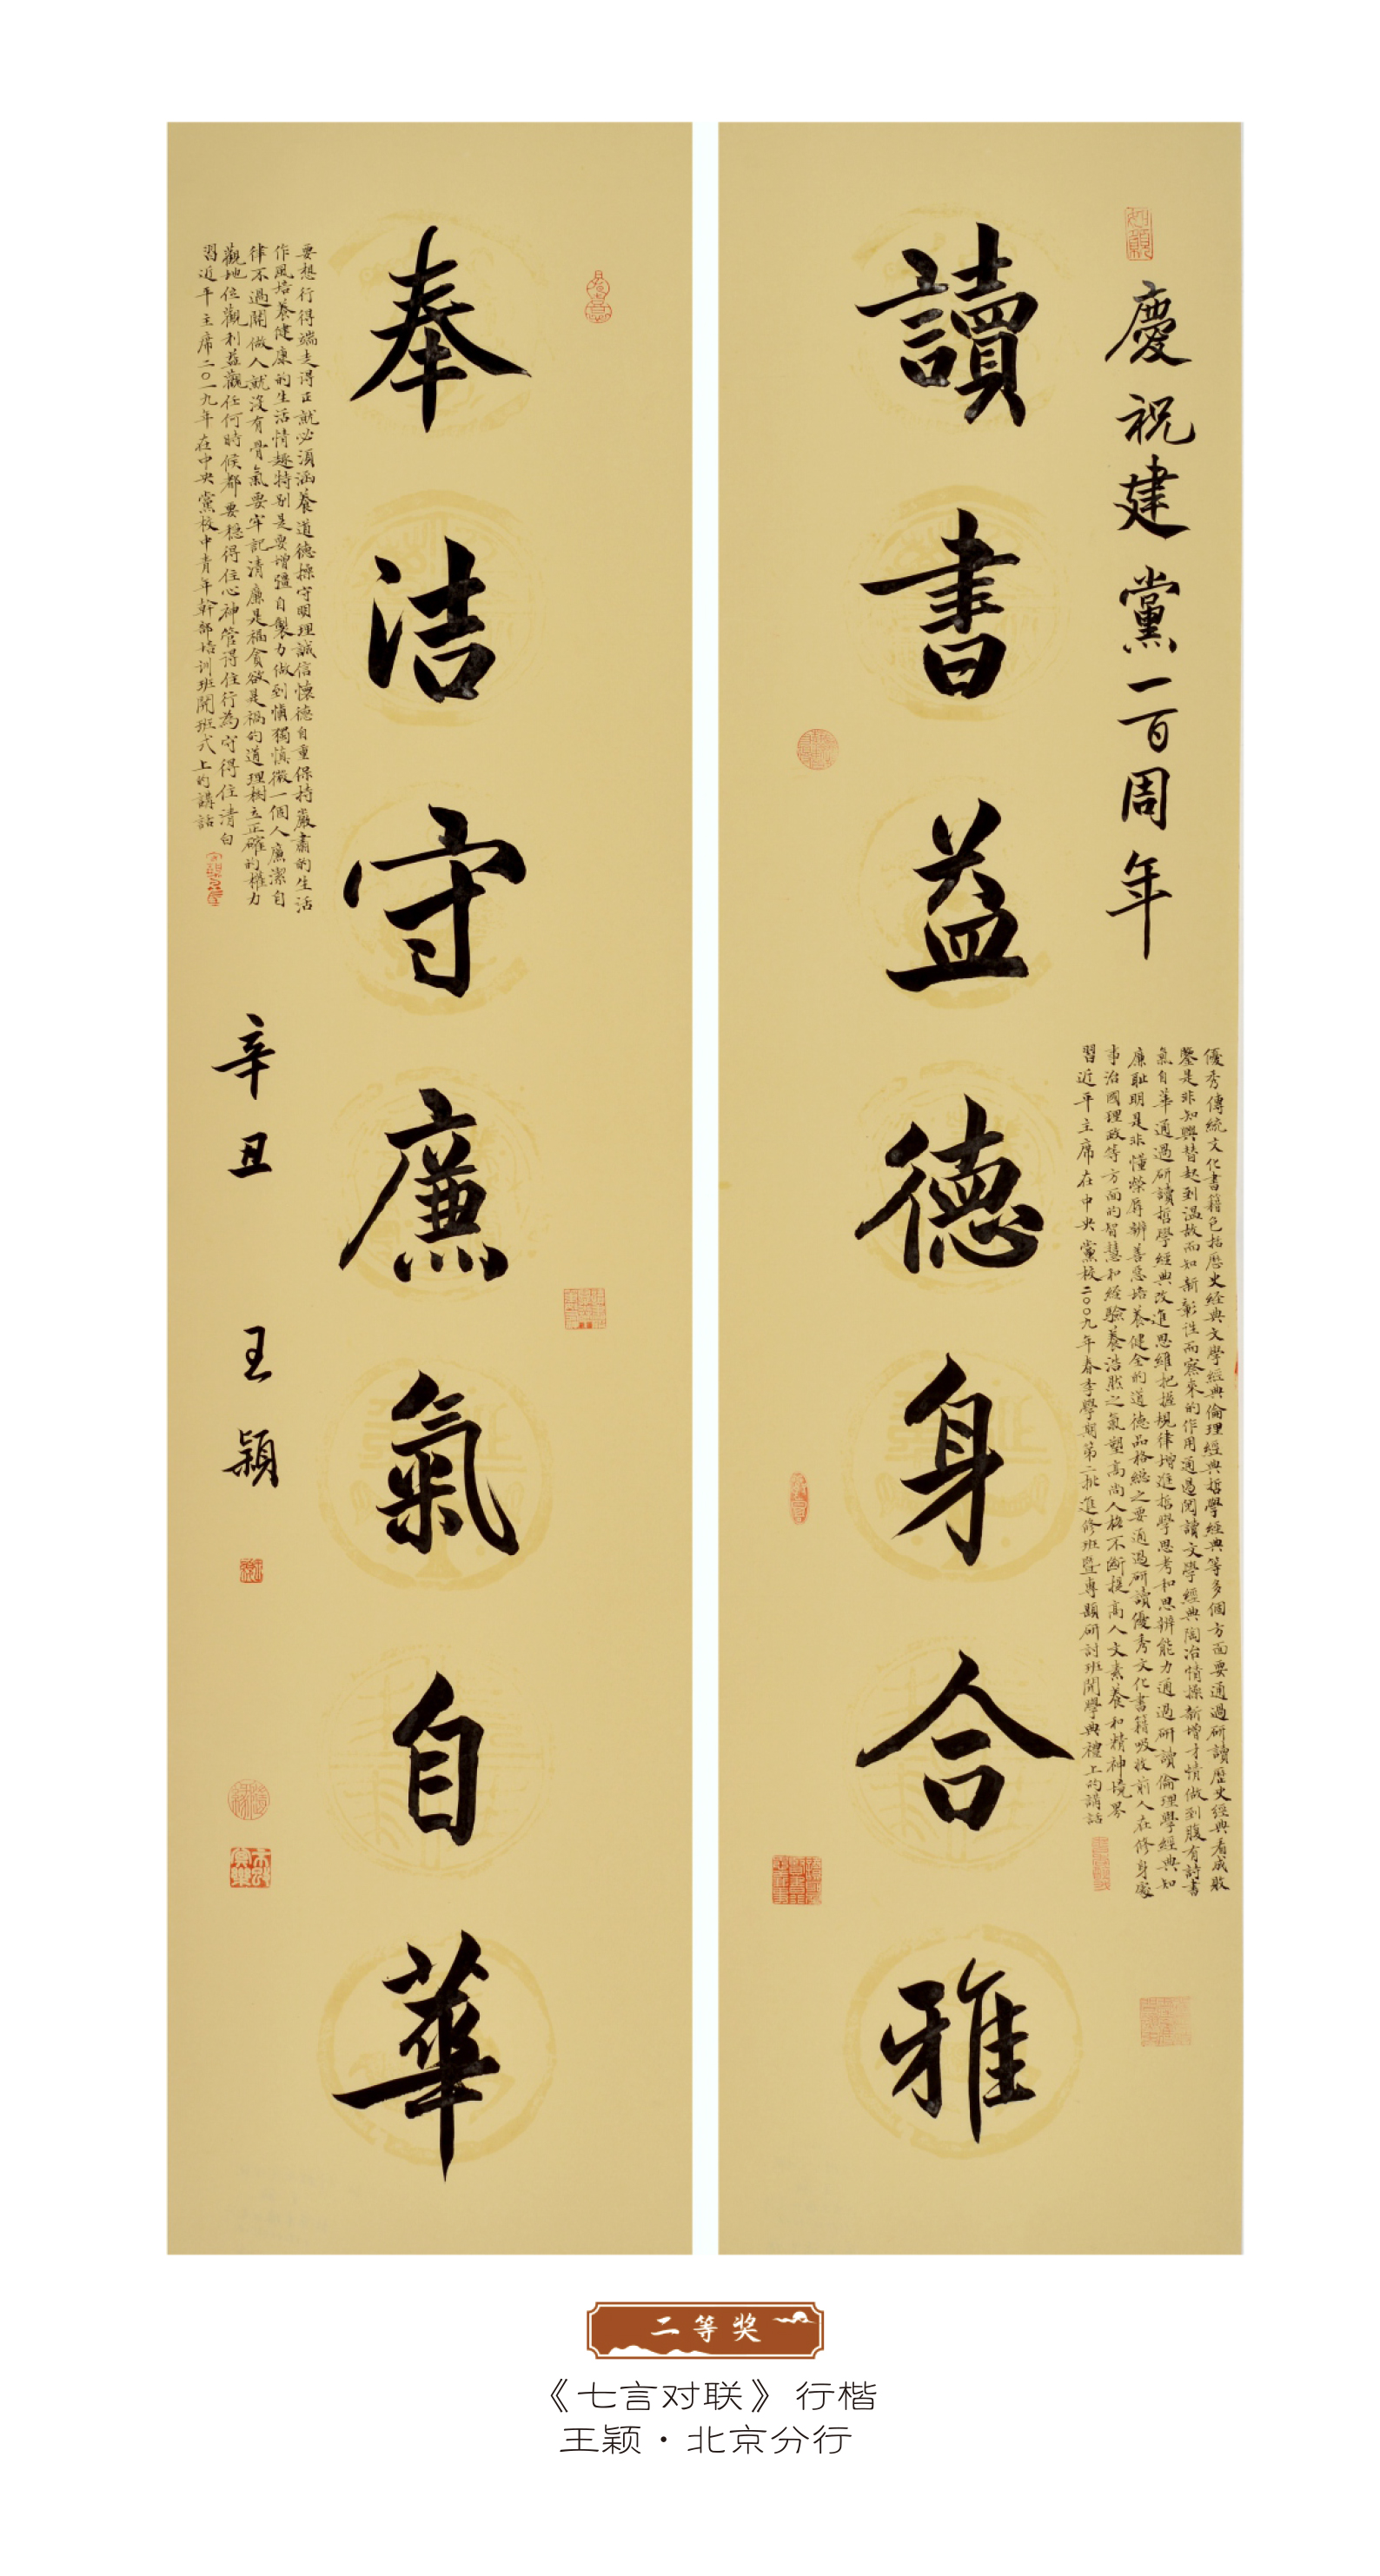 慶祝建黨一百周年
讀書益德身合雅
優秀傳統文化書籍包括歷史經典文學經典倫理經典哲學經典等多個方面要通過研讀歷史經典看成敗
鑒是非知興替起到溫故而知新彰往而察來的作用通過閱讀文學經典陶冶情操新增才情做到腹有詩書
氣自華通過研讀哲學經典改進思維把握規律增進哲學思考和思辨能力通過研讀倫理學經典知
廉耻明是非懂榮辱辨善惡培養健全的道德品格總之要通過研讀優秀文化書籍吸收前人在修身處
事治國理政等方面的智慧和經驗養浩然之氣塑高尚人格不斷提高人文素養和精神境界
習近平主席在中央黨校二〇〇九年春季學期第二批進修班暨專題研討班開學典禮上的講話
奉洁守廉氣自華
要想行得端走得正就必須涵養道德操守明理誠信懷德自重保持嚴肅的生活
作風培養健康的生活情趣特别是要增強自製力做到慎獨慎微一個人廉潔自
律不過關做人就沒有骨氣要牢記清廉是福貪欲是禍的道理樹立正確的權力
觀地位觀利益觀任何時候都要穩得住心神管得住行為守得住清白
習近平主席二〇一九年在中央黨校中青年幹部培训班開班式上的講話
辛丑 王穎
二等奖
《七言对联》行楷
王颖·北京分行